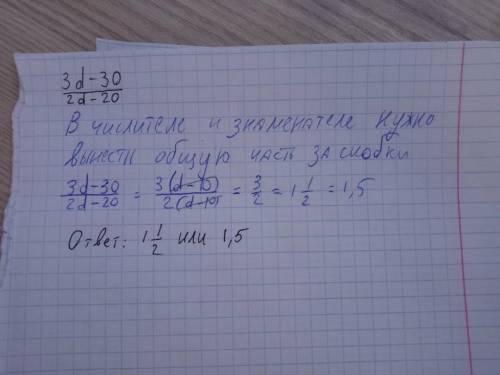 3d-30/2d-20
В числителе и знаменателе нужно
вынести общую часть за скобки
3d-30/2d-20 = 3(d-10)/2(d-10) = 3/2 = 1 1/2 = 1,5
Ответ: 1 1/2 или 1,5